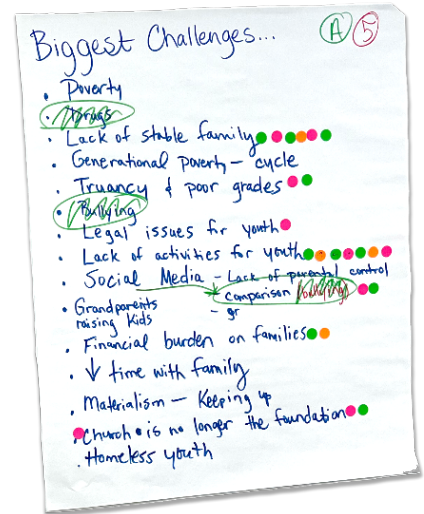 Biggest Challenges... A 5
• Poverty
• Drugs
• Lack of stable family
• Generational poverty – cycle
• Truancy & poor grades
• Bullying
• Legal issues for youth
• Lack of activities for youth
• Social Media – Lack of parental control
comparison bullying
• Grandparents – gr
raising Kids
• Financial burden on families
• ↓ time with family
• Materialism – Keeping up
• Church is no longer the foundation
• Homeless youth